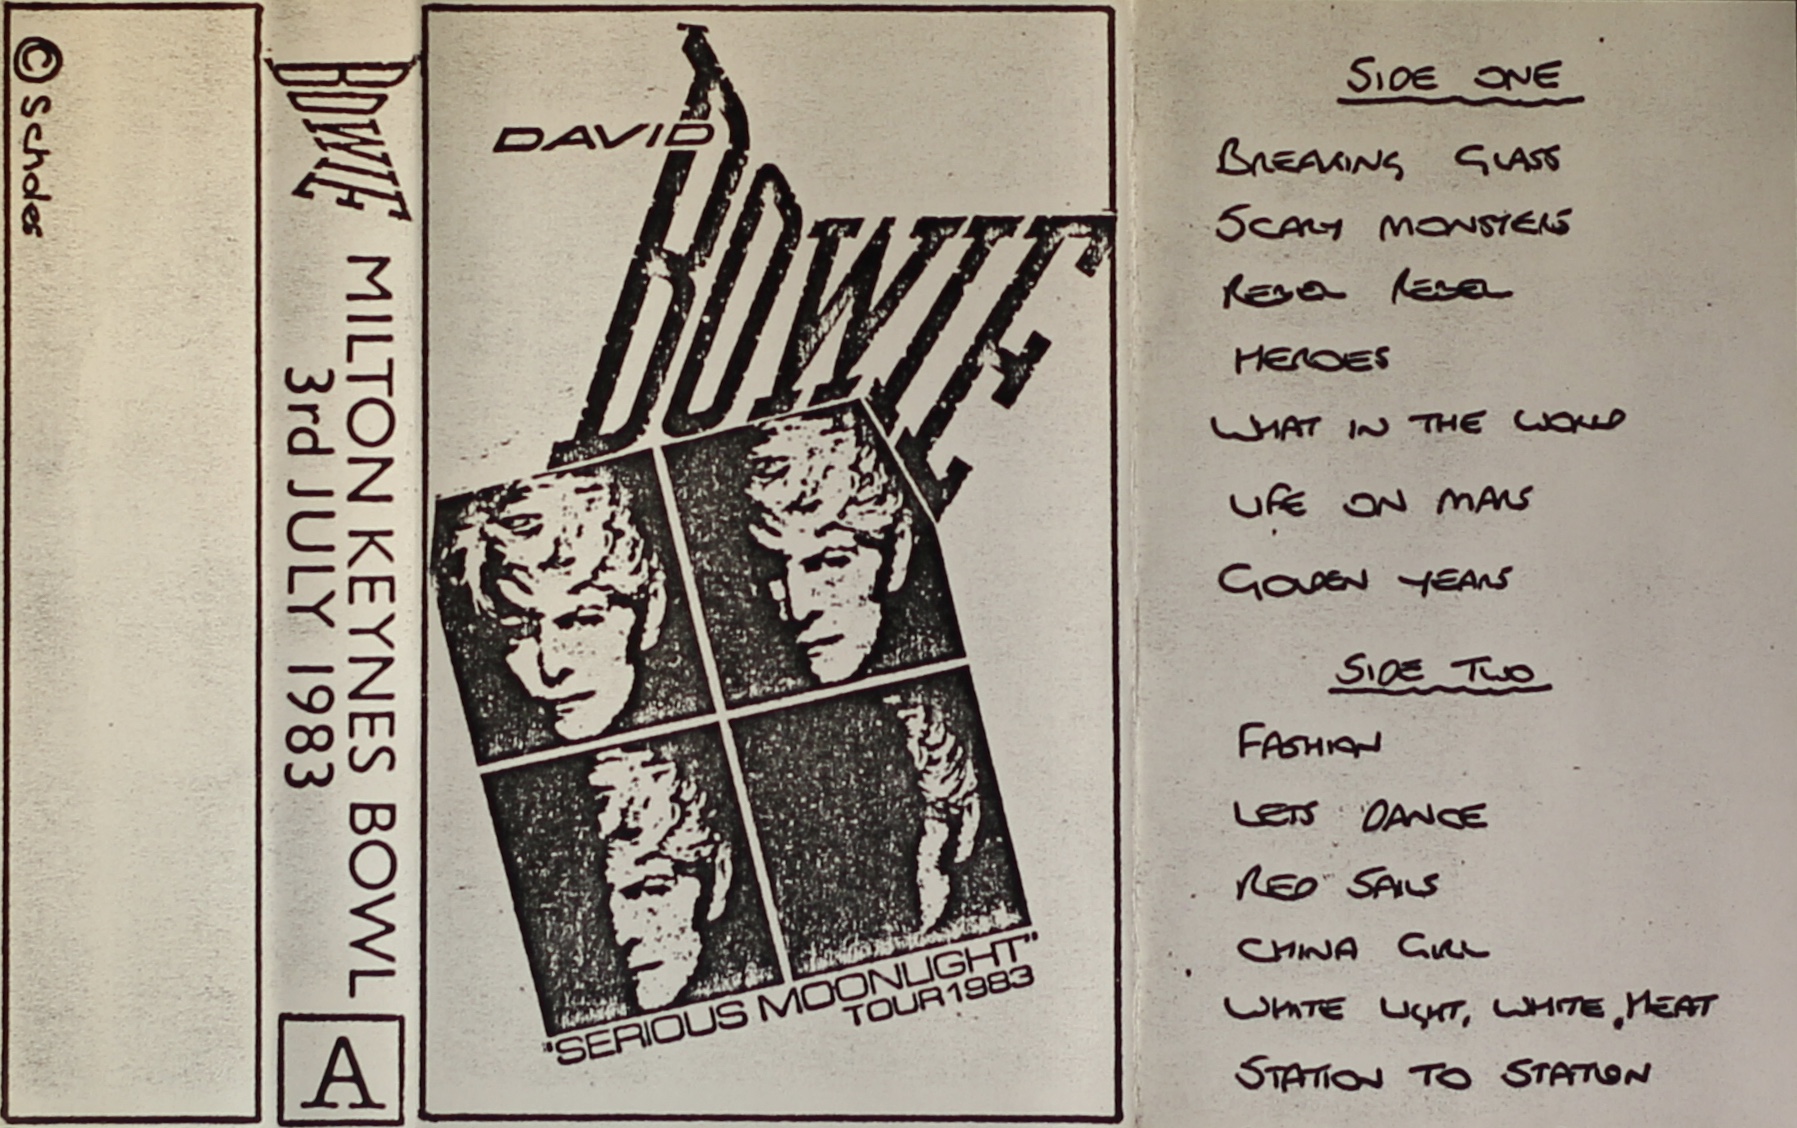 © Schades
BOWIE
MILTON KEYNES BOWL
3rd JULY 1983
A
DAVID
BOWIE
"SERIOUS MOONLIGHT"
TOUR 1983
SIDE ONE
BREAKING GLASS
SCARY MONSTERS
REBEL REBEL
HEROES
WHAT IN THE WORLD
LIFE ON MARS
GOLDEN YEARS
SIDE TWO
FASHION
LETS DANCE
RED SAILS
CHINA GIRL
WHITE LIGHT, WHITE, HEAT
STATION TO STATION